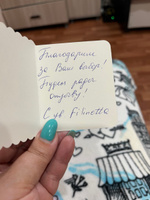 Благодарим
за Ваш выбор!
Будем рады
отзыву!
С ув. Fikuetta